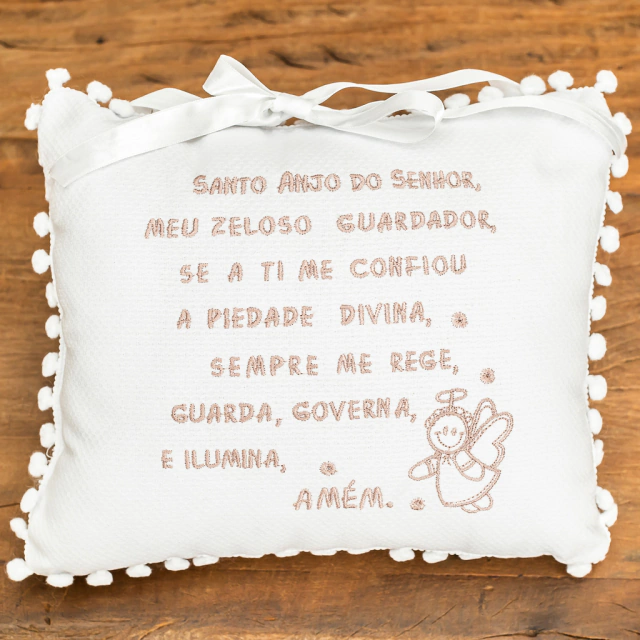 SANTO ANJO DO SENHOR,
MEU ZELOSO GUARDADOR,
SE A TI ME CONFIOU
A PIEDADE DIVINA,
SEMPRE ME REGE,
GUARDA, GOVERNA,
E ILUMINA,
AMÉM.